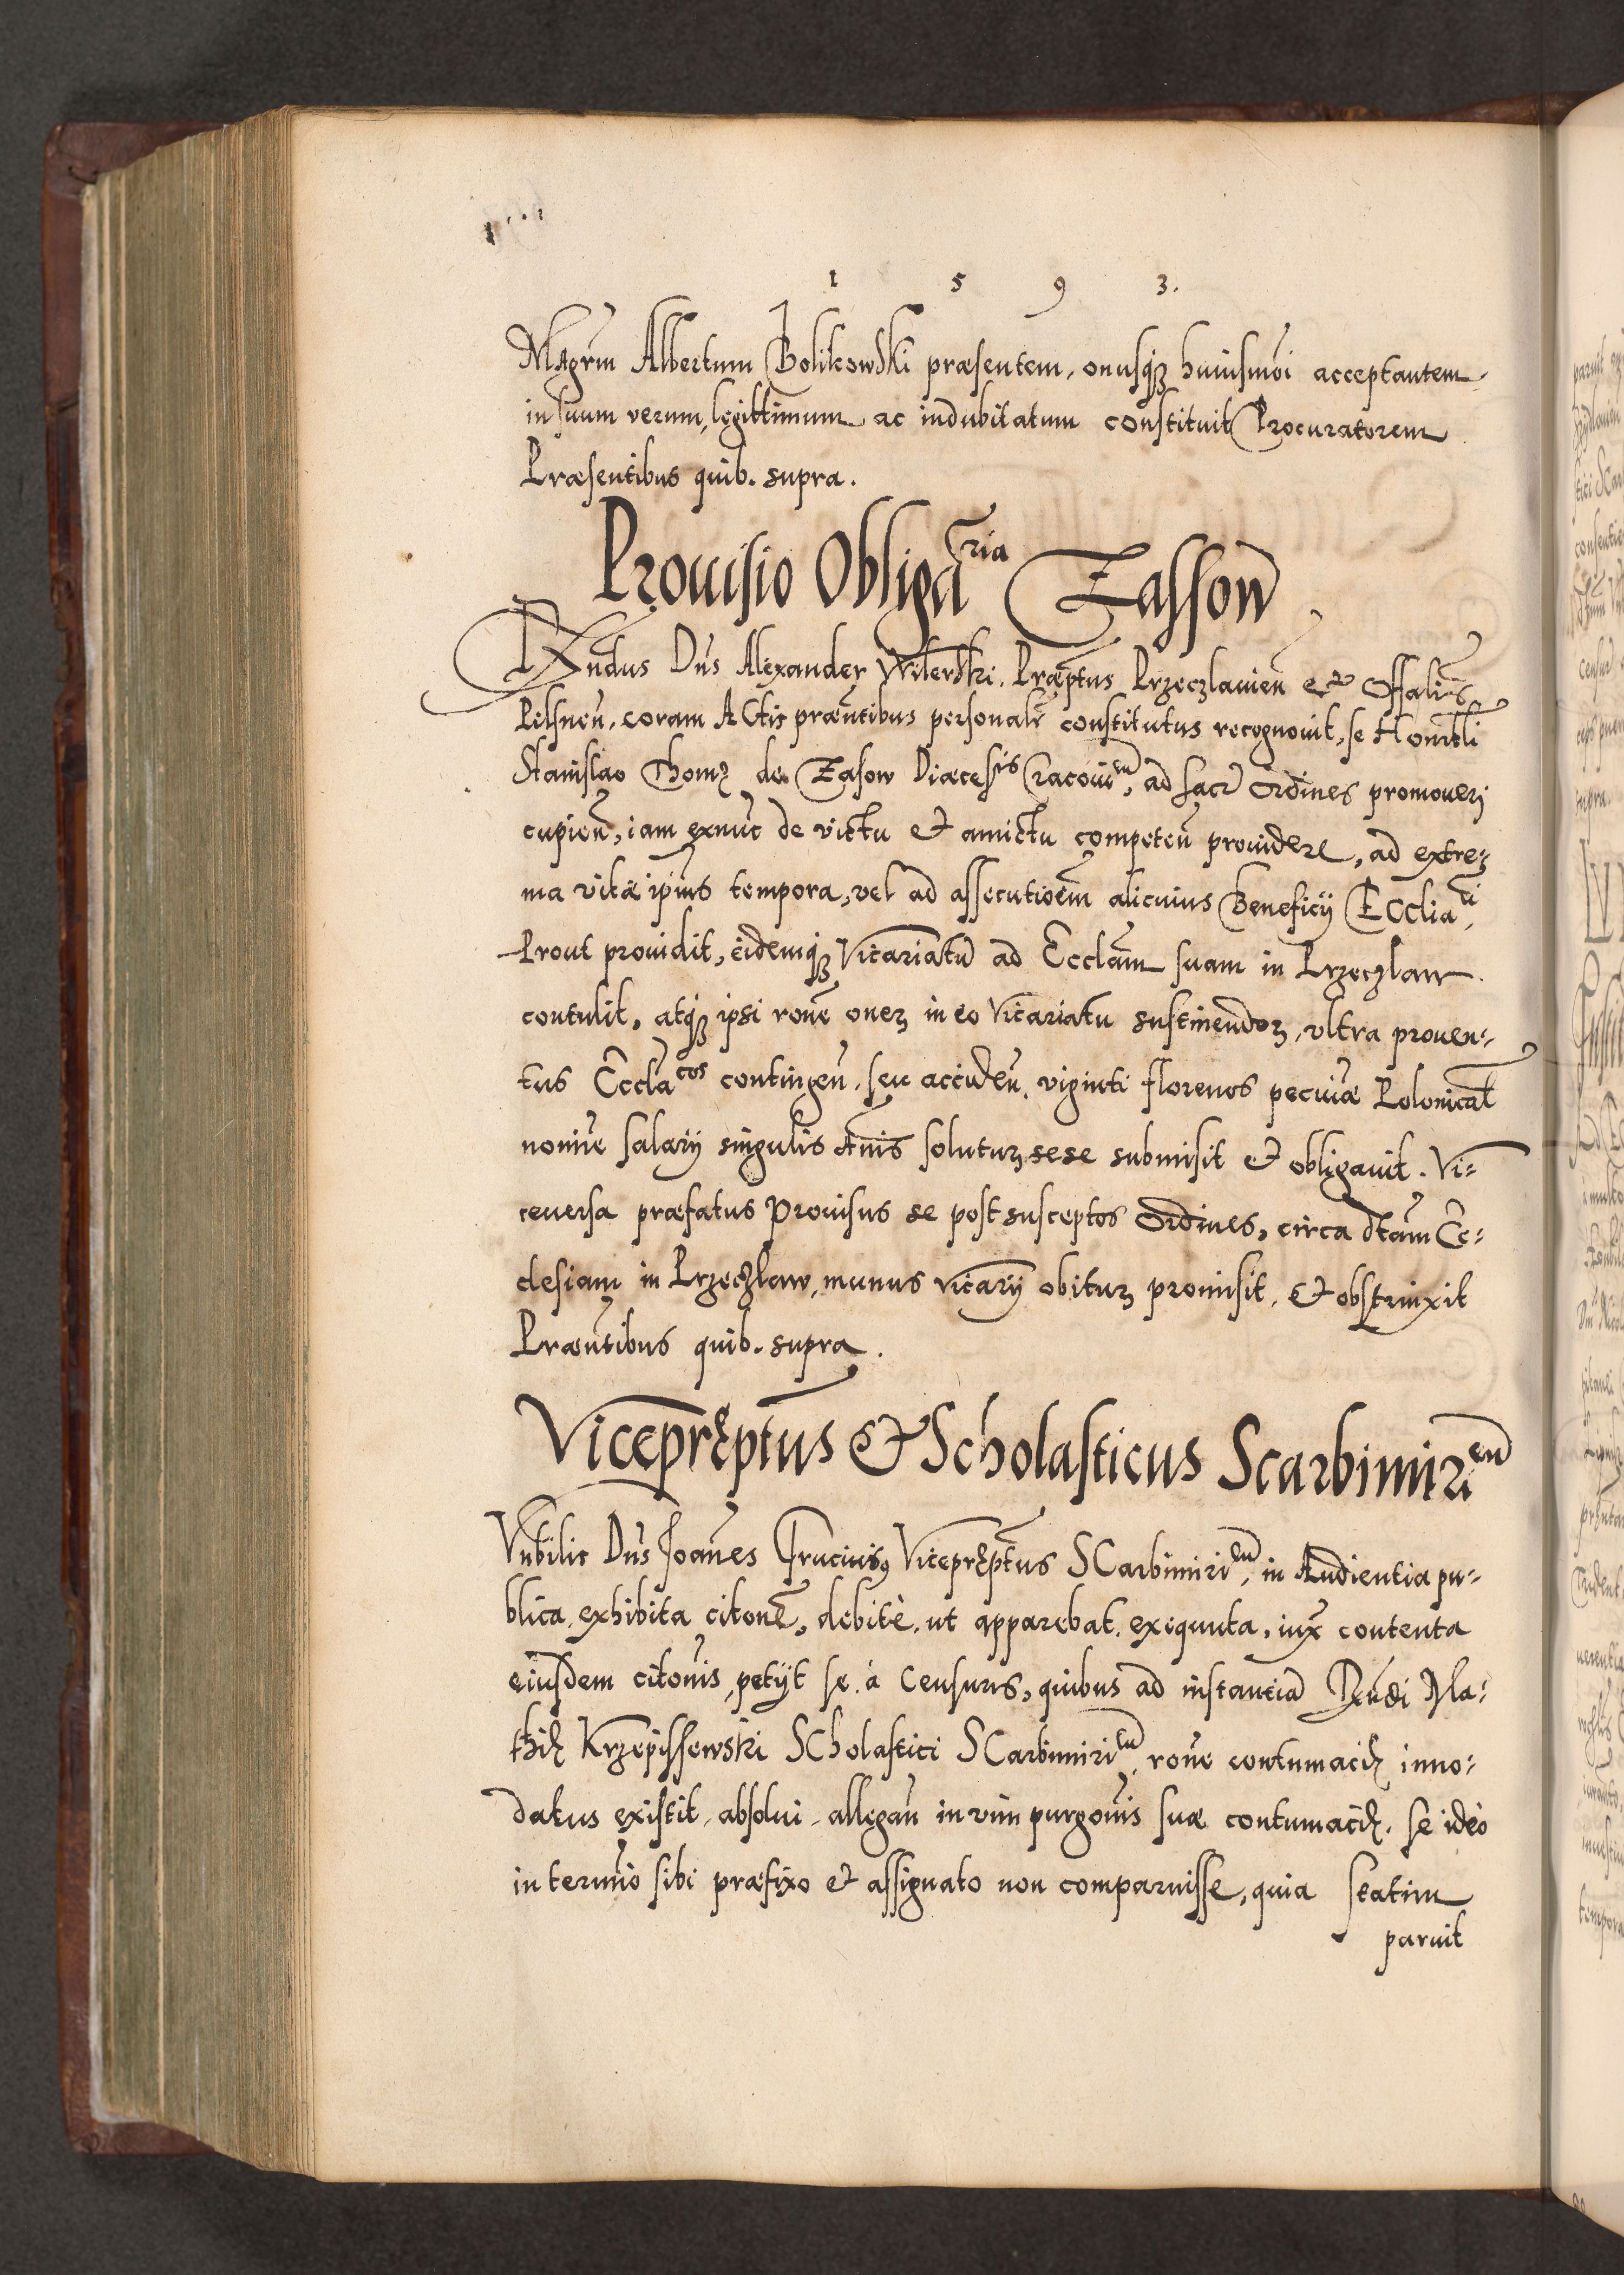 1 5 9 3.
Mag̃rm Albertum Bolikowski præsentem, onusq₃ huiusmõi acceptantem,
in suum verum, legittimum ac indubitatum constituit Procuratorem
Præsentibus quib. supra.
Prouisio Obligãria Zassow
R̃ndus Dñs Alexander Witerski. Præptus Przeczlauieñ et Offalis
Pilsneñ, coram ACtis præñtibus personalr̃ constitutus recognouit, se Honõbli
Stanislao Thomę de Zasow Diæcesis Cracouieñ, ad sacr̃ ordines promoueri
cupieñ, iam exnũc de victu et amictu competeñ prouidere, ad extre-
ma vitæ ip̃ius tempora, vel ad assecutiõem alicuius Beneficÿ ECCliãti,
Prout prouidit, eidemq₃ Vicariatũ ad Eccl̃am suam in Przeczlaw.
contulit, atq₃ ipsi rõne oneꝝ in eo Vicariatu sustinendoꝝ, vltra prouen-
tus Eccl̃acos contingeñ. seu accideñ. viginti florenos pecũiæ Polonical̃
noñie salarÿ singulis Añis soluturꝫ sese submisit et obligauit. Vi-
ceuersa præfatus Prouisus se post susceptos ordines, circa dt̃am Ec-
clesiam in Przeczlaw, munus vicarÿ obiturꝫ promisit, et obstrinxit
Præñtibus quib. supra.
Viceprępt̃us et Scholasticus Scarbimireñ
Vñbilis Dñs Joañes Viceprępt̃us SCarbimirieñ, in Audientia pu-
blica, exhibita citõne, debitè, ut apparebat, exequuta, iux̃ contenta
eiusdem citõnis, petÿt se à Censuris, quibus ad instantiã R̃ndi Ma-
thię Krzepissewski SCholastici SCarbimirieñ, rõne contumacię inno-
datus existit, absolui, allegañ in vim purgõnis suæ contumacię, se ideò
in termĩo sibi præfixo et assignato non comparuisse, quia statim
paruit